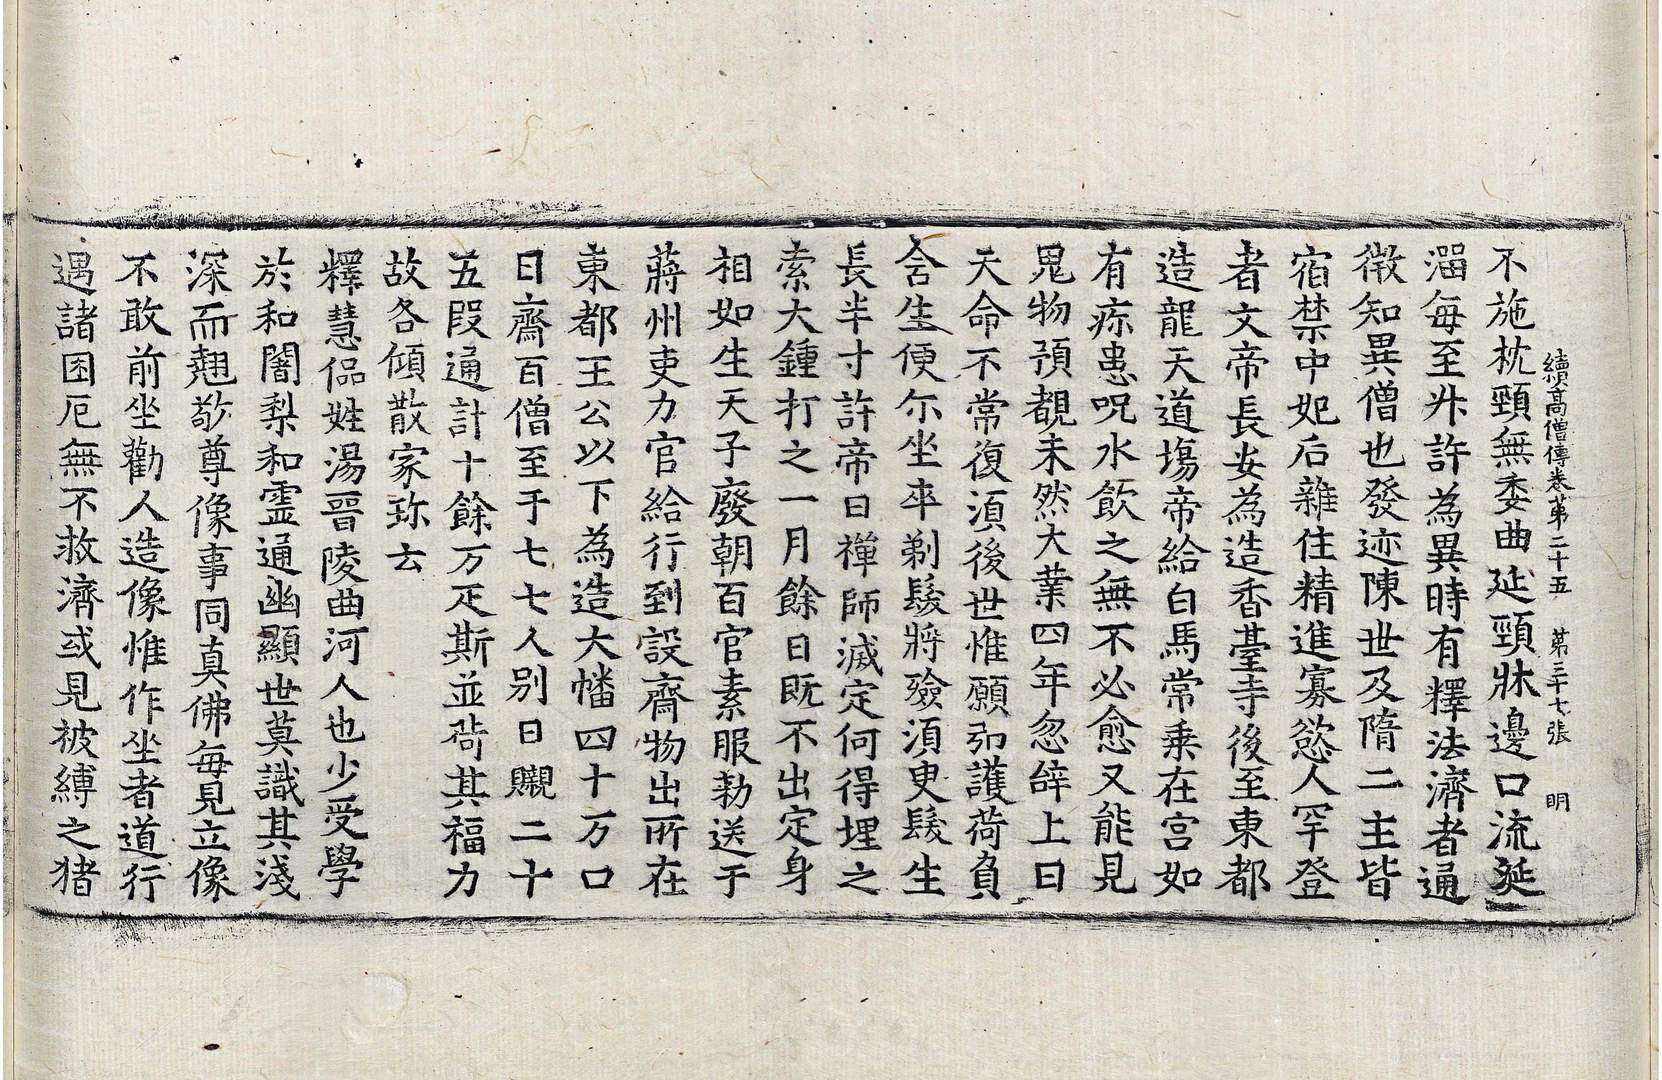 續高僧傳卷第二十五 第三十七張 明
不施枕頸無委曲延頸牀邊口流涎
湽每至升許為異時有釋法濟者通
微知異僧也發迹陳世及隋二主皆
宿禁中妃后雜住精進寡慾人罕登
者文帝長安為造香臺寺後至東都
造龍天道場帝給白馬常乘在宮如
有疹患呪水飲之無不必愈又能見
鬼物預覩未然大業四年忽辭上曰
天命不常復須後世惟願弘護荷負
含生便尒坐卒剃髮將殮須更髮生
長半寸許帝曰禪師滅定何得埋之
索大鍾打之一月餘日既不出定身
相如生天子廢朝百官素服勑送于
蔣州吏力官給行到設齋物出所在
東都王公以下為造大幡四十万口
日齋百僧至于七七人別日嚫二十
五段通計十餘万疋斯並荷其福力
故各傾散家珎云
釋慧偘姓湯晉陵曲河人也少受學
於和闍梨和靈通幽顯世莫識其淺
深而翹敬尊像事同真佛每見立像
不敢前坐勸人造像惟作坐者道行
遇諸困厄無不救濟或見被縛之猪